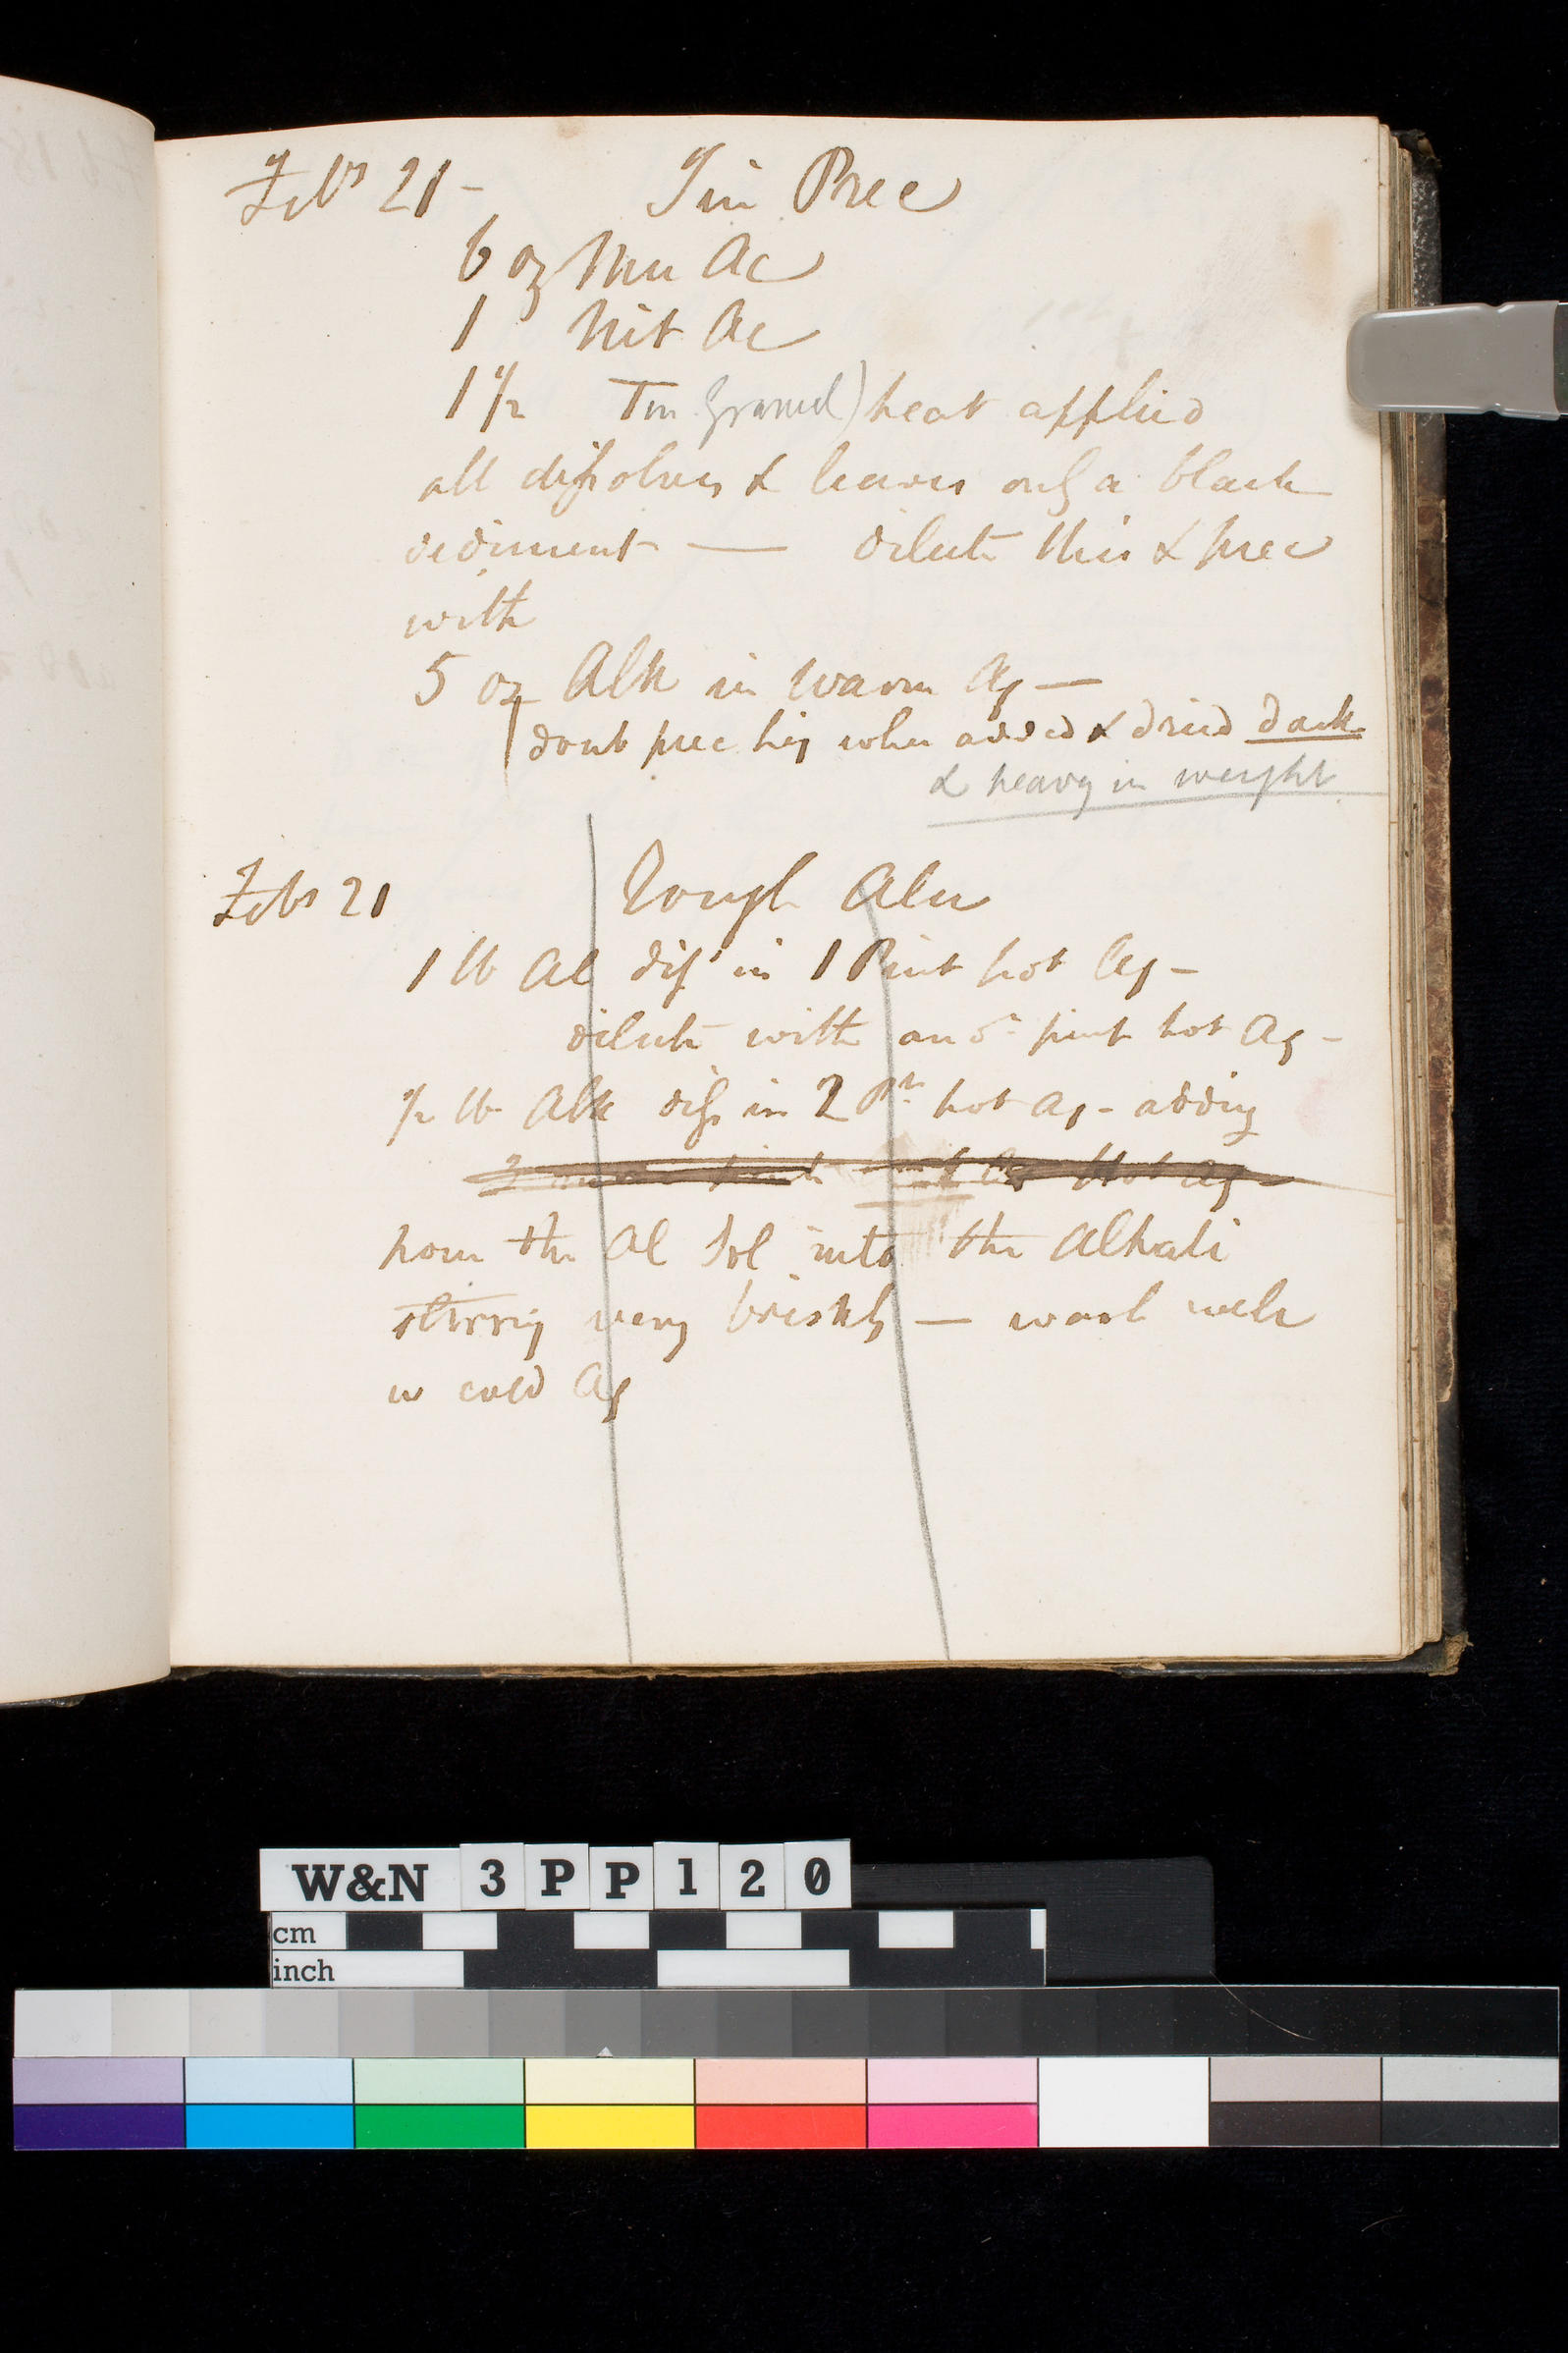 Febr 21 - Tin Prec
6 oz Mu Ac
1 Nit Ac
1 1/2 Tin (grained) heat applied
all dissolves & leaves only a black
sediment — dilute this & prec
with
5 oz Alk in warm Aq —
dont prec hig when added & dried dark
& heavy in weight
Febr 21 Rough Alu
1 lb Al diss in 1 Pint hot Aq -
dilute with anor pint hot Aq -
1/2 lb Alk diss in 2 Pts hot Aq - adding
Hot Aq
pour the Al Sol into the Alkali
stirring very briskly — wash well
in cold Aq
W&N 3PP120
cm
inch